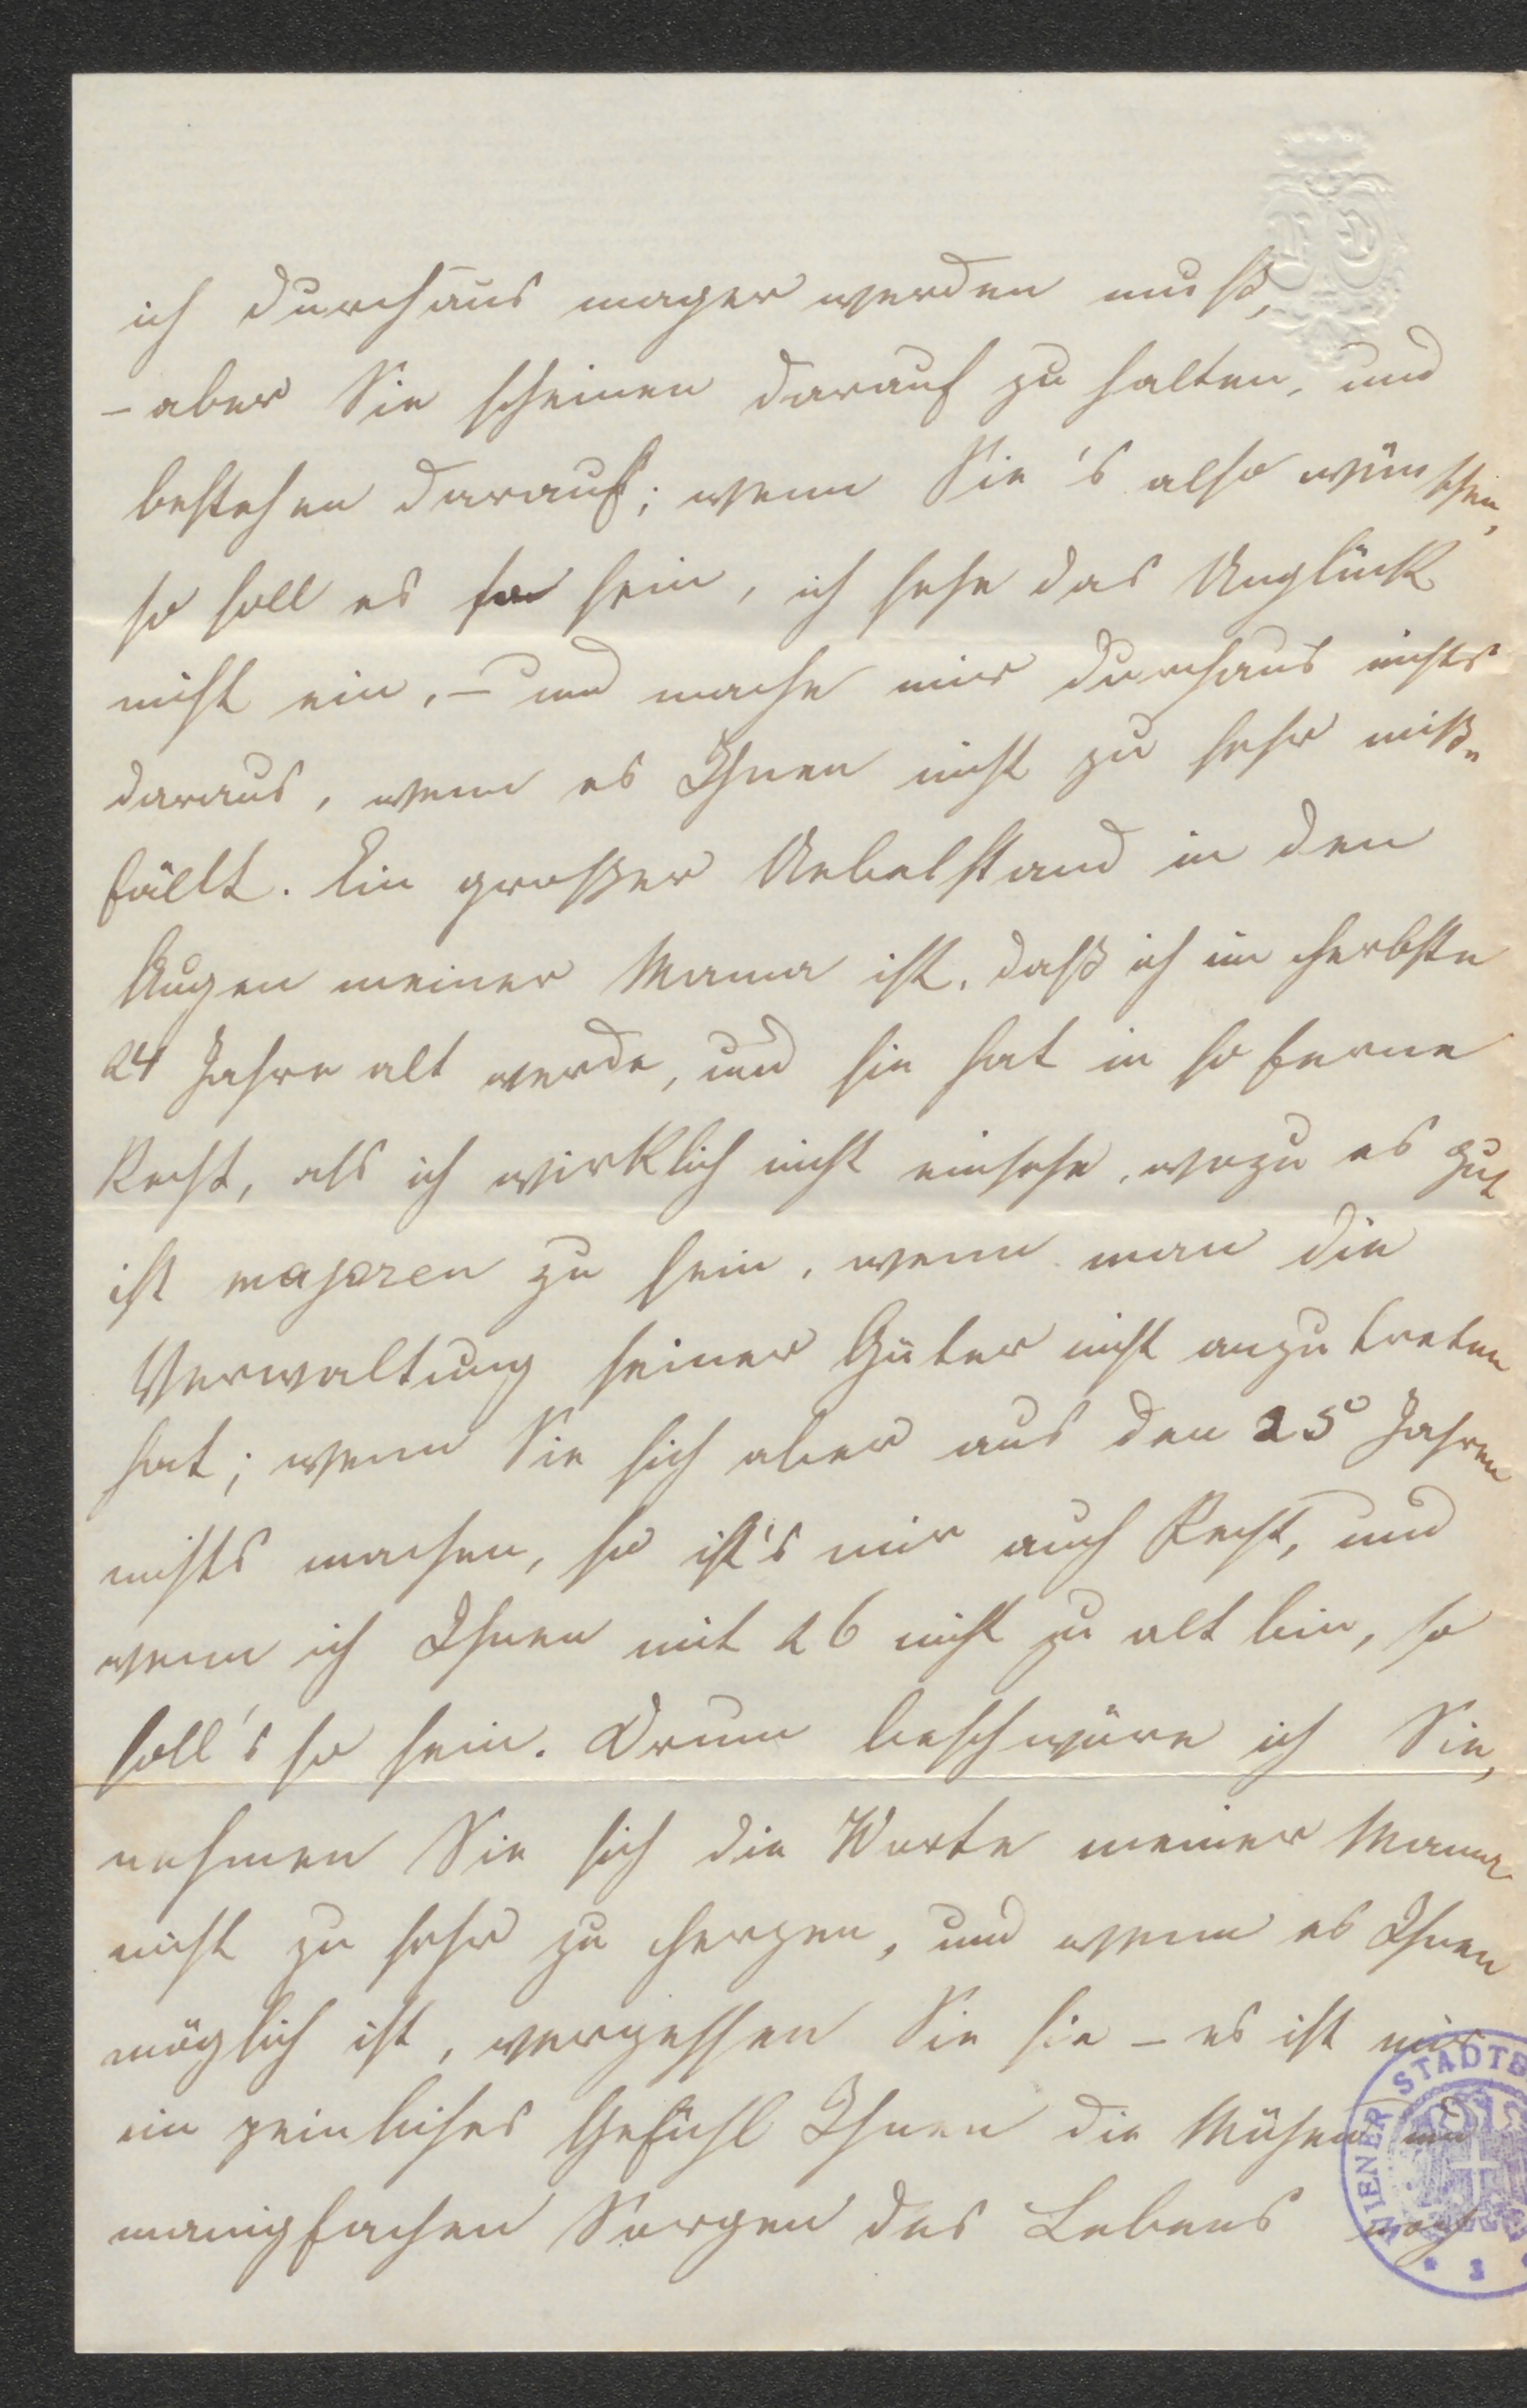 ich durchaus mager werden muß,
– aber Sie scheinen darauf zu halten, und
bestehen darauf; wenn Sie's also wünschen,
so soll es so sein, ich sehe das Unglück
nicht ein, – und mache mir durchaus nichts
daraus, wenn es Ihnen nicht zu sehr miß-
fällt. Ein großer Uebelstand in den
Augen meiner Mama ist, daß ich im Herbste
24 Jahre alt werde, und sie hat in so ferne
Recht, als ich wirklich nicht einsehe, wozu es gut
ist majoren zu sein, wenn man die
Verwaltung seiner Güter nicht anzutreten
hat; wenn Sie sich aber aus den 25 Jahren
nichts machen, so ist's mir auch Recht, und
wenn ich Ihnen mit 26 nicht zu alt bin, so
soll's so sein. Drum beschwöre ich Sie,
nehmen Sie sich die Worte meiner Mama
nicht zu sehr zu Herzen, und wenn es Ihnen
möglich ist, vergessen Sie sie – es ist mir
ein peinliches Gefühl Ihnen die Mühen und
manigfachen Sorgen des Lebens noch
WIENER STADTB